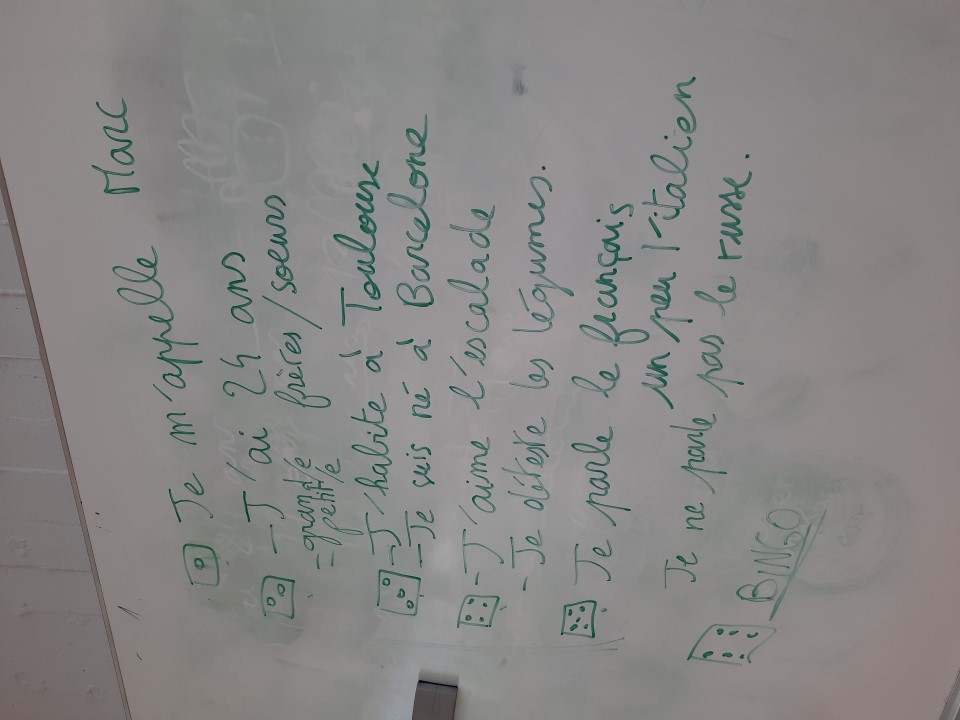 Je m'appelle Marc
- J'ai 24 ans
= grand/e frères/soeurs
petit/e
- J'habite à Toulouse
- Je suis né à Barcelone
- J'aime l'escalade
- Je déteste les légumes.
Je parle le français
un peu l'italien
Je ne parle pas le russe.
BINGO